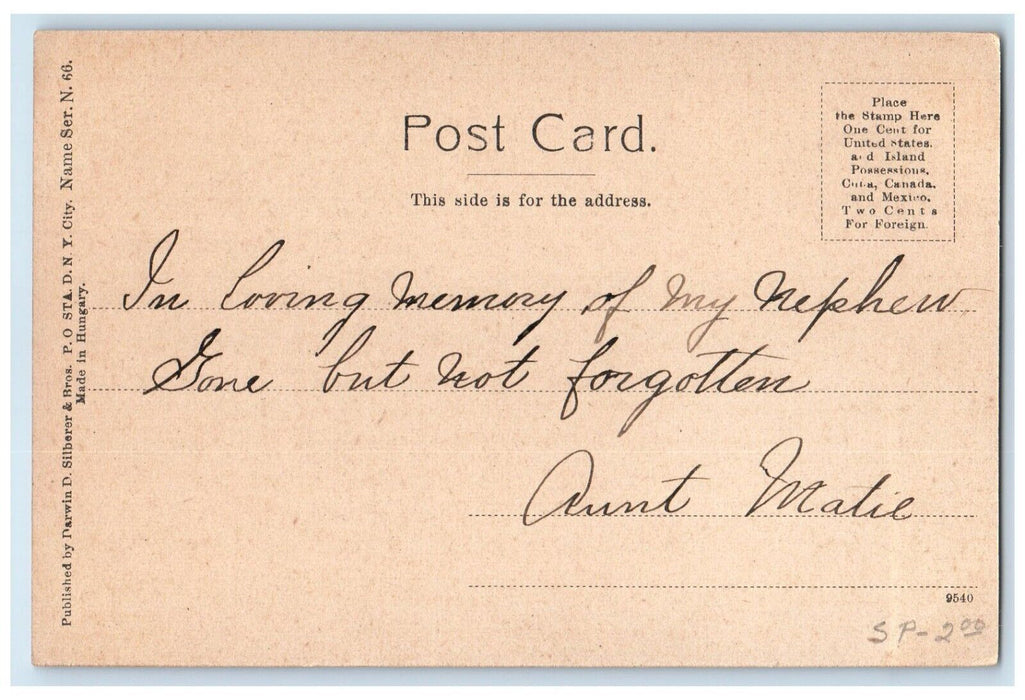 Published by Darwin D. Silberer & Bros. P. O STA. D. N. Y. City. Name Ser. N. 66.
Made in Hungary.
Post Card.
This side is for the address.
Place
the Stamp Here
One Cent for
United States.
and Island
Possessions,
Cuba, Canada,
and Mexico.
Two Cents
For Foreign.
In loving memory of my Nephew
Gone but not forgotten
Aunt Matie
9540
SP-2.00